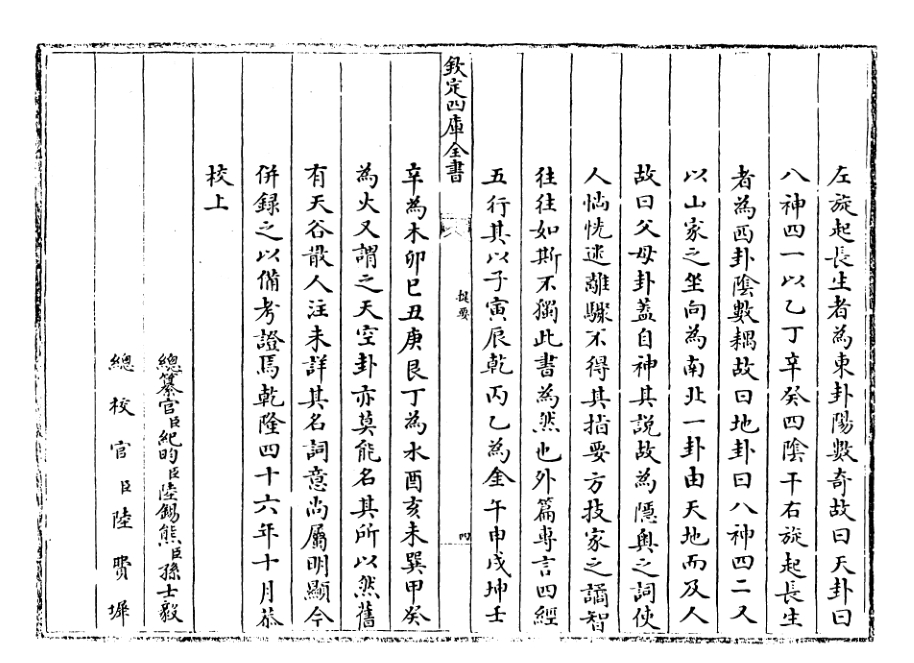 左旋起長生者為東卦陽數奇故曰天卦曰
八神四一以乙丁辛癸四陰干右旋起長生
者為西卦陰數耦故曰地卦曰八神四二又
以山家之坐向為南北一卦由天地而及人
故曰父母卦蓋自神其説故為隱奥之詞使
人惝恍迷離驟不得其指要方技家之譎智
往往如斯不獨此書為然也外篇専言四經
五行其以子寅辰乾丙乙為金午申戌坤壬
欽定四庫全書
提要
四
辛為木卯巳丑庚艮丁為水酉亥未巽甲癸
為火又謂之天空卦亦莫能名其所以然舊
有天谷散人注未詳其名詞意尚屬明顯今
併録之以備考證焉乾隆四十六年十月恭
校上
總纂官臣紀昀臣陸錫熊臣孫士毅
總校官臣陸費墀